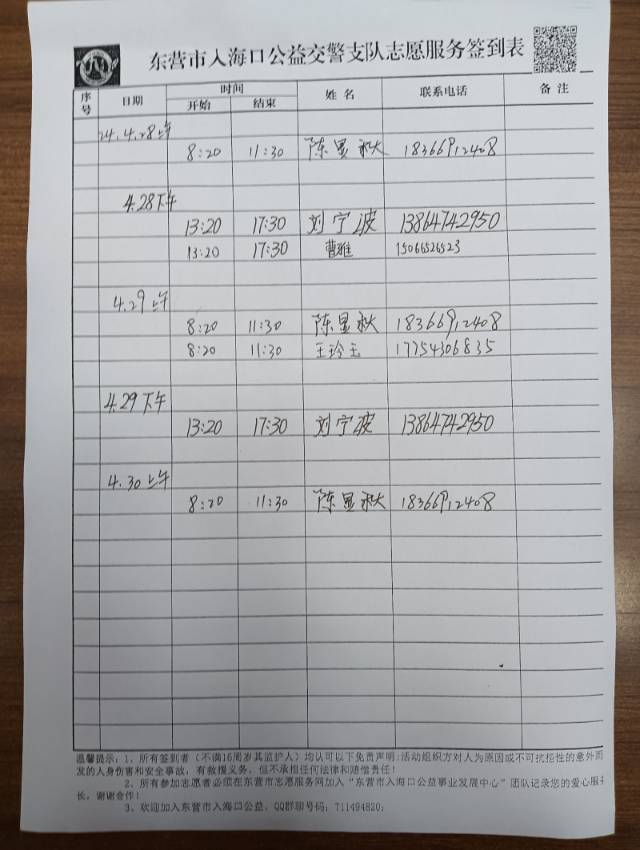 东营市入海口公益交警支队志愿服务签到表
序号 日期 时间 姓名 联系电话 备注
开始 结束
24.4.28上午
8:20 11:30 陈显秋 18366912408
4.28下午
13:20 17:30 刘宁波 13864742950
13:20 17:30 曹雅 15066526523
4.29上午
8:20 11:30 陈显秋 18366912408
8:20 11:30 王玲玉 17754306835
4.29下午
13:20 17:30 刘宁波 13864742950
4.30上午
8:20 11:30 陈显秋 18366912408
温馨提示:1、所有签到者(不满16周岁其监护人)均认可以下免责声明:活动组织方对人为原因或不可抗拒性的意外而
发的人身伤害和安全事故,有救援义务,但不承担任何法律和赔偿责任!
2、所有参加志愿者必须在东营市志愿服务网加入“东营市入海口公益事业发展中心”团队记录您的爱心服务
长,谢谢合作!
3、欢迎加入东营市入海口公益,QQ群聊号码:711494820;